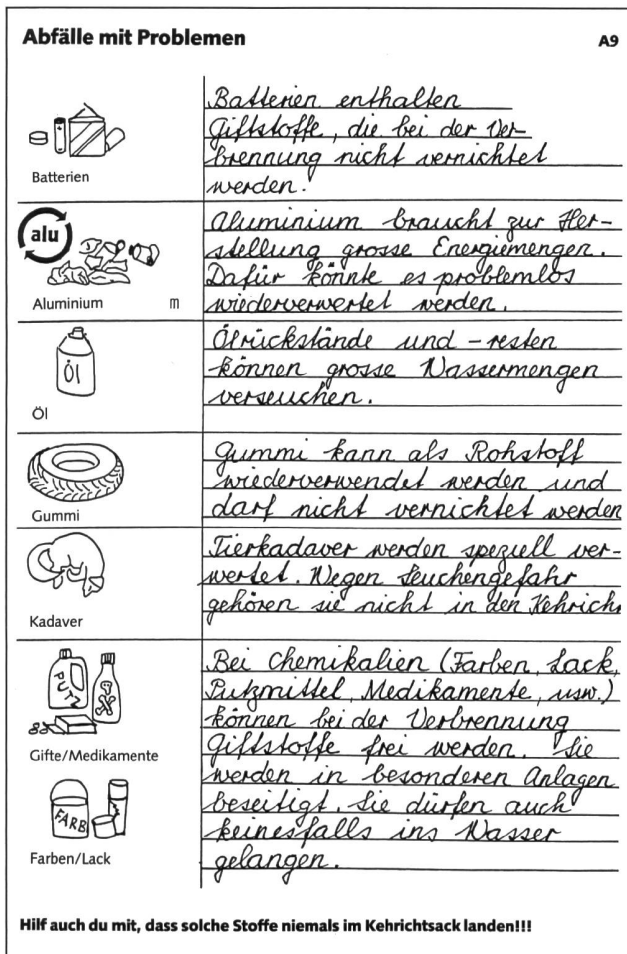 Abfälle mit Problemen
A9
Batterien
Batterien enthalten
Giftstoffe, die bei der Ver-
brennung nicht vernichtet
werden.
alu
Aluminium
m
Aluminium braucht zur Her-
stellung grosse Energiemengen.
Dafür könnte es problemlos
wiederverwertet werden.
Öl
Öl
Ölrückstände und -resten
können grosse Wassermengen
verseuchen.
Gummi
Gummi kann als Rohstoff
wiederverwendet werden und
darf nicht vernichtet werden
Kadaver
Tierkadaver werden speziell ver-
wertet. Wegen Seuchengefahr
gehören sie nicht in den Kehrich
PUTZ
Gifte/Medikamente
FARB
Farben/Lack
Bei Chemikalien (Farben, Lack,
Putzmittel, Medikamente, usw.)
können bei der Verbrennung
Giftstoffe frei werden. Sie
werden in besonderen Anlagen
beseitigt. Sie dürfen auch
keinesfalls ins Wasser
gelangen.
Hilf auch du mit, dass solche Stoffe niemals im Kehrichtsack landen!!!